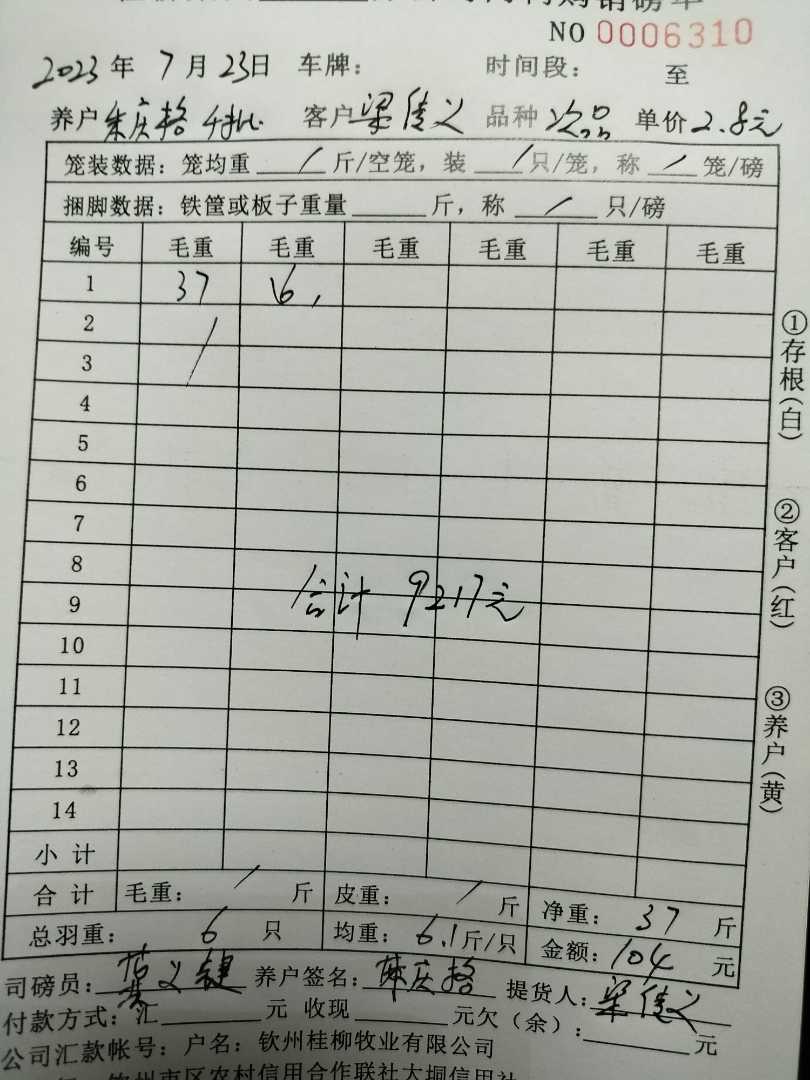 购销磅单
NO 0006310
2023年 7月 23日 车牌： 时间段： 至
养户 客户 梁 义 品种 次品 单价 2.8元
笼装数据：笼均重 / 斤/空笼，装 / 只/笼，称 / 笼/磅
捆脚数据：铁筐或板子重量 斤，称 / 只/磅
编号 毛重 毛重 毛重 毛重 毛重 毛重
1 37 6,
2 /
3
4
5
6
7
8
9 合计 9217元
10
11
12
13
14
小计
合计 毛重： / 斤 皮重： / 斤 净重： 37 斤
总羽重： 6 只 均重： 6.1斤/只 金额： 104 元
司磅员： 义键 养户签名： 庆格 提货人： 梁 义
付款方式：汇 元 收现 元欠（余）： 元
公司汇款帐号：户名：钦州桂柳牧业有限公司
钦州市区农村信用合作联社大垌信用社
①存根（白）
②客户（红）
③养户（黄）